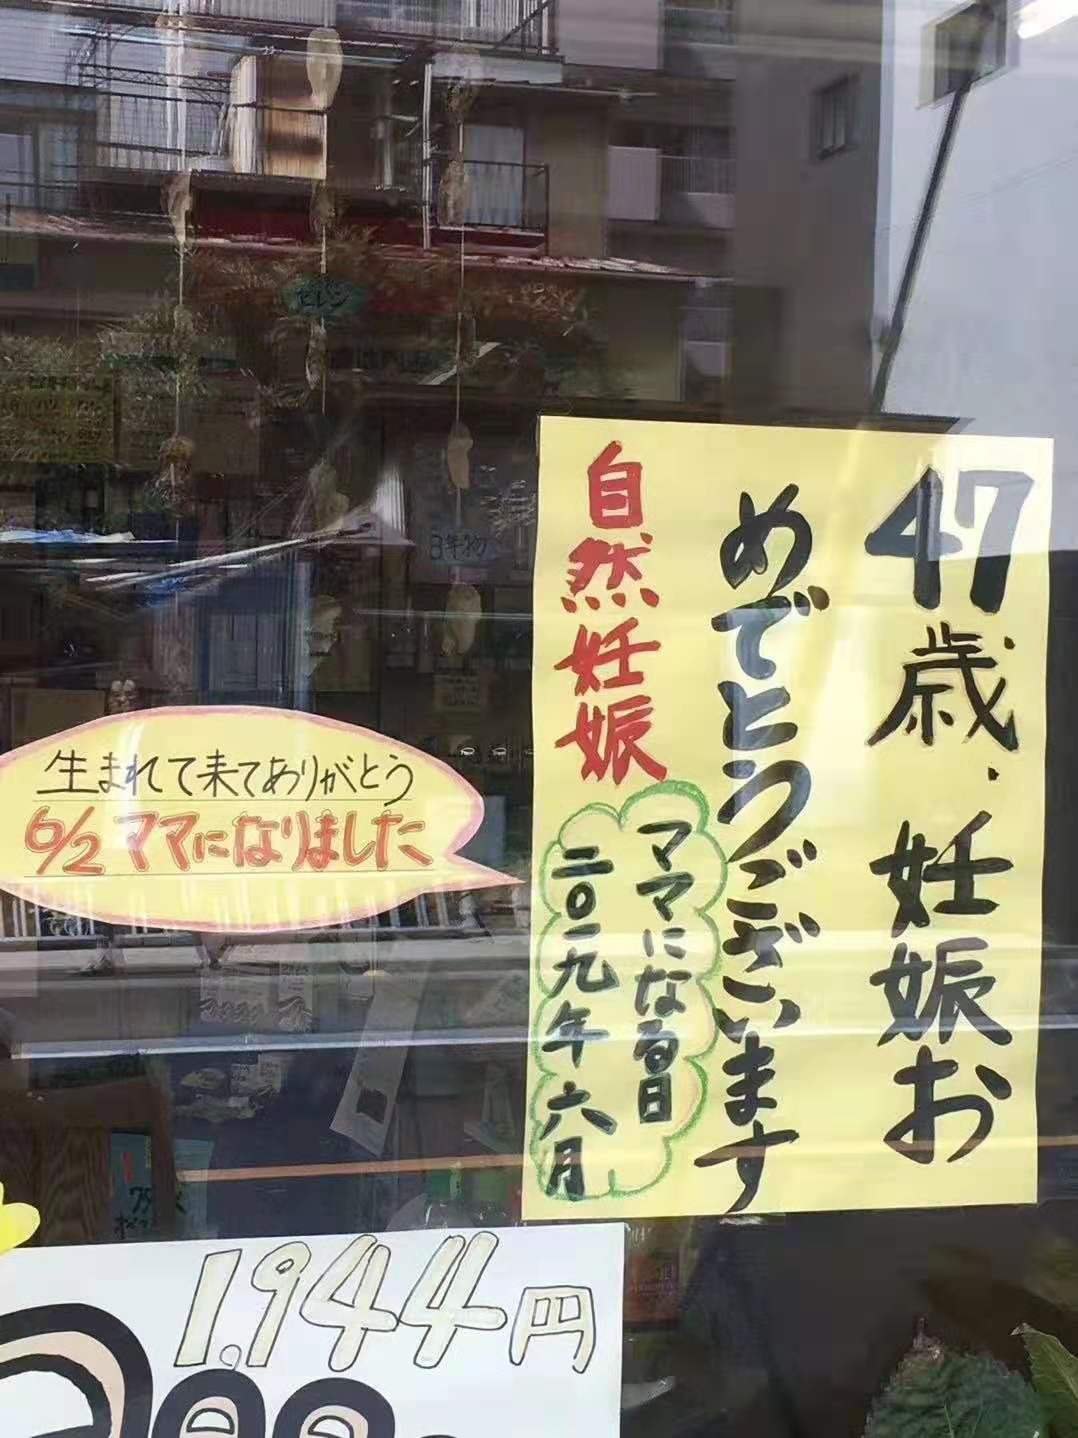 47歳・妊娠お
めでとうございます
自然妊娠
ママになる日
二〇一九年六月
生まれて来てありがとう
6/2 ママになりました
1,944円
セレン